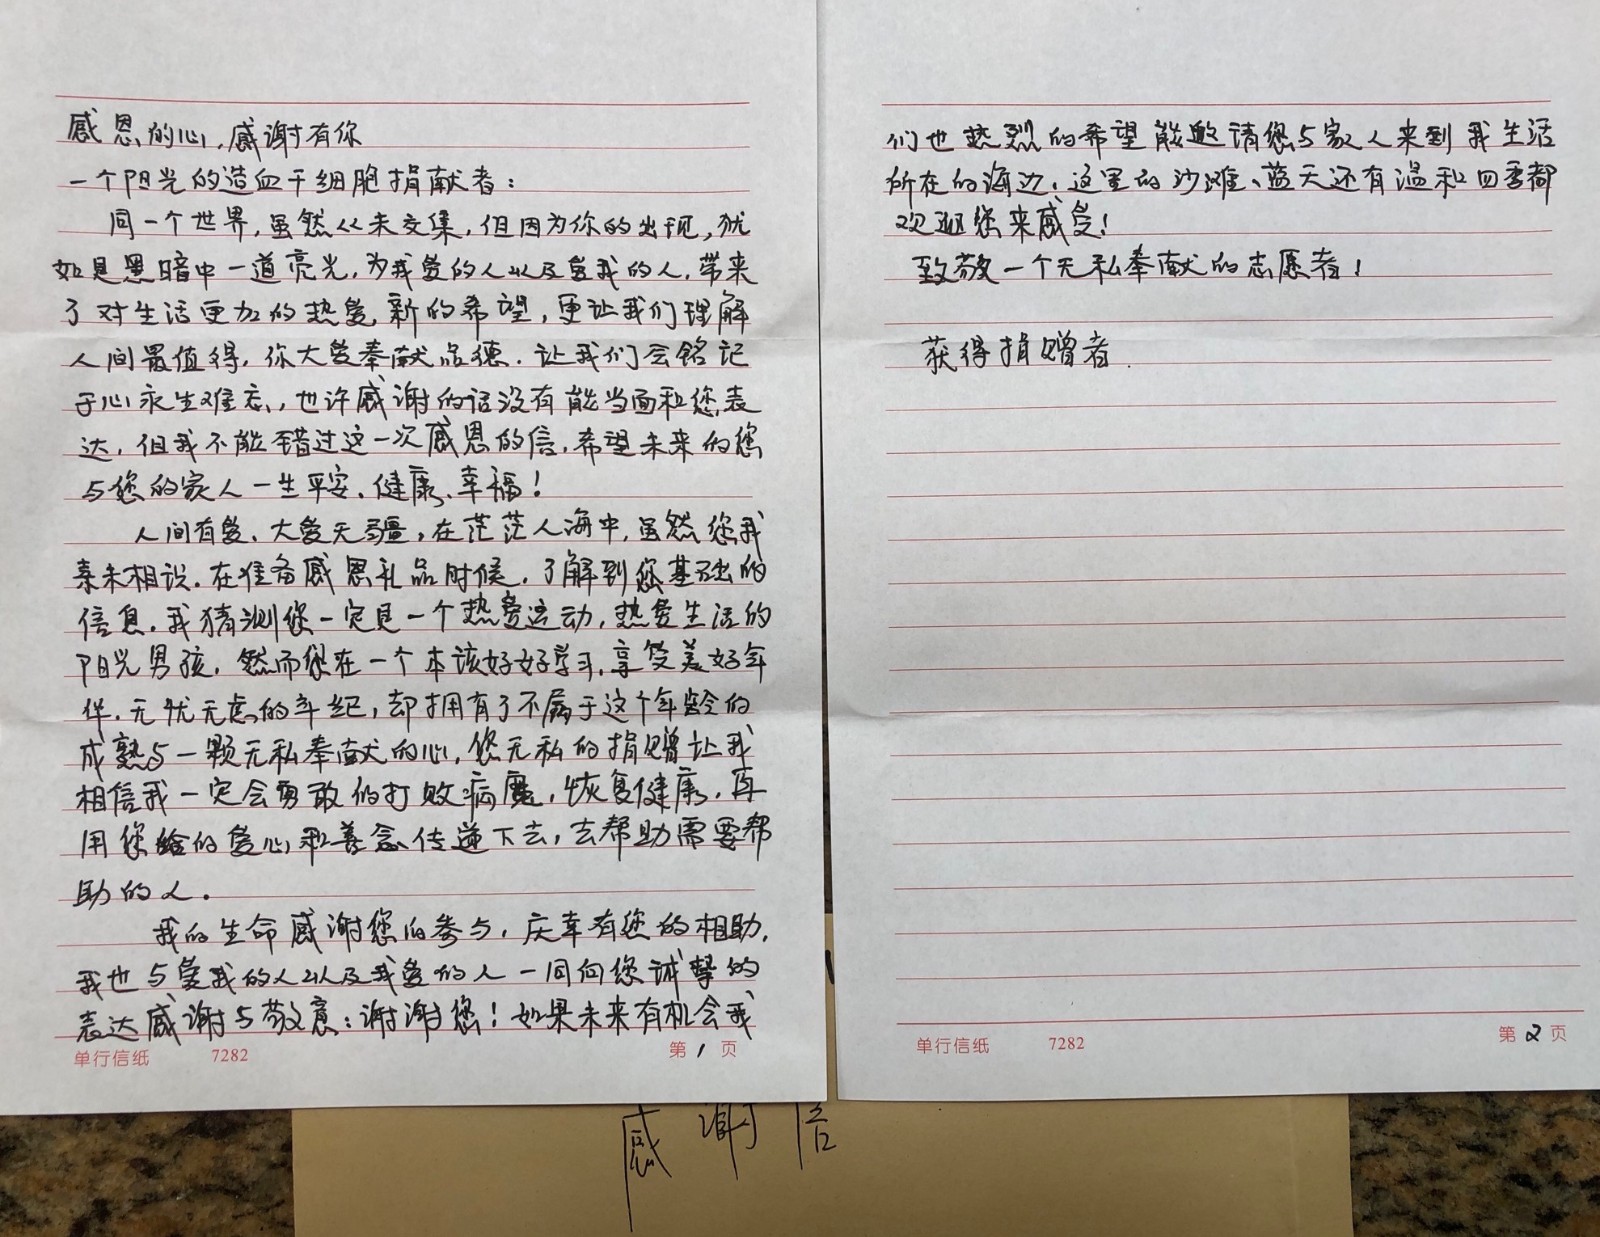 感恩的心,感谢有你
一个阳光的造血干细胞捐献者：
同一个世界,虽然从未交集,但因为你的出现,犹
如是黑暗中一道亮光,为我爱的人以及爱我的人,带来
了对生活更加的热爱,新的希望,更让我们理解
人间最值得,你大爱奉献品德.让我们会铭记
于心永生难忘,也许感谢的话没有能当面和您表
达,但我不能错过这一次感恩的信.希望未来的您
与您的家人一生平安、健康、幸福!
人间有爱、大爱无疆,在茫茫人海中,虽然您我
素未相识.在准备感恩礼品时候.了解到您基础的
信息.我猜测您一定是一个热爱运动,热爱生活的
阳光男孩.然而您在一个本该好好学习,享受美好年
华.无忧无虑的年纪,却拥有了不属于这个年龄的
成熟与一颗无私奉献的心,您无私的捐赠让我
相信我一定会勇敢的打败病魔,恢复健康,再
用您给的爱心和善念传递下去,去帮助需要帮
助的人.
我的生命感谢您的参与,庆幸有您的相助,
我也与爱我的人以及我爱的人一同向您诚挚的
表达感谢与敬意:谢谢您!如果未来有机会我
单行信纸 7282 第1页
们也热烈的希望能邀请您与家人来到我生活
所在的海边.这里的沙滩、蓝天还有温和四季都
欢迎您来感受!
致敬一个无私奉献的志愿者!
获得捐赠者.
单行信纸 7282 第2页
感谢信